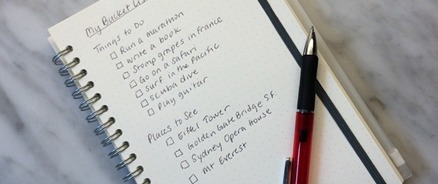 My Bucket Lis
Things to do
Run a marathon
write a book
Stomp grapes in France
Go on a safari
Surf in the Pacific
Scuba dive
Play guitar
Places to See
Eiffel Tower
Golden Gate Bridge S.F.
Sydney Opera House
Mt Everest